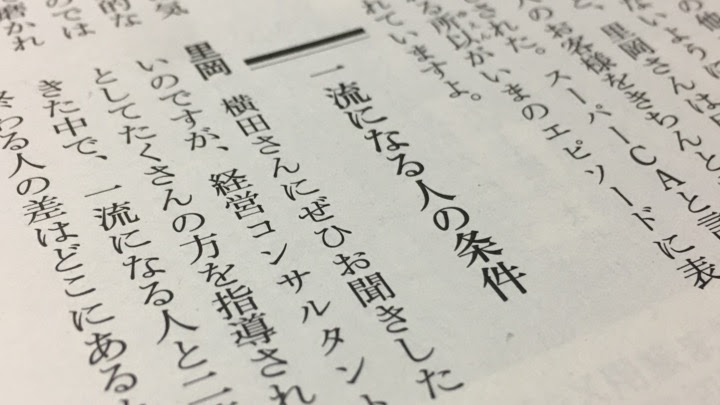 の他
ないように
、里岡さんは
人のお客様をきちんと
された。スーパーCAと言
る所以がいまのエピソードに表
れていますよ。
一流になる人の条件
里岡 横田さんにぜひお聞きした
いのですが、経営コンサルタント
としてたくさんの方を指導され
きた中で、一流になる人と二
終わる人の差はどこにある
気
的な
のでは
磨かれ